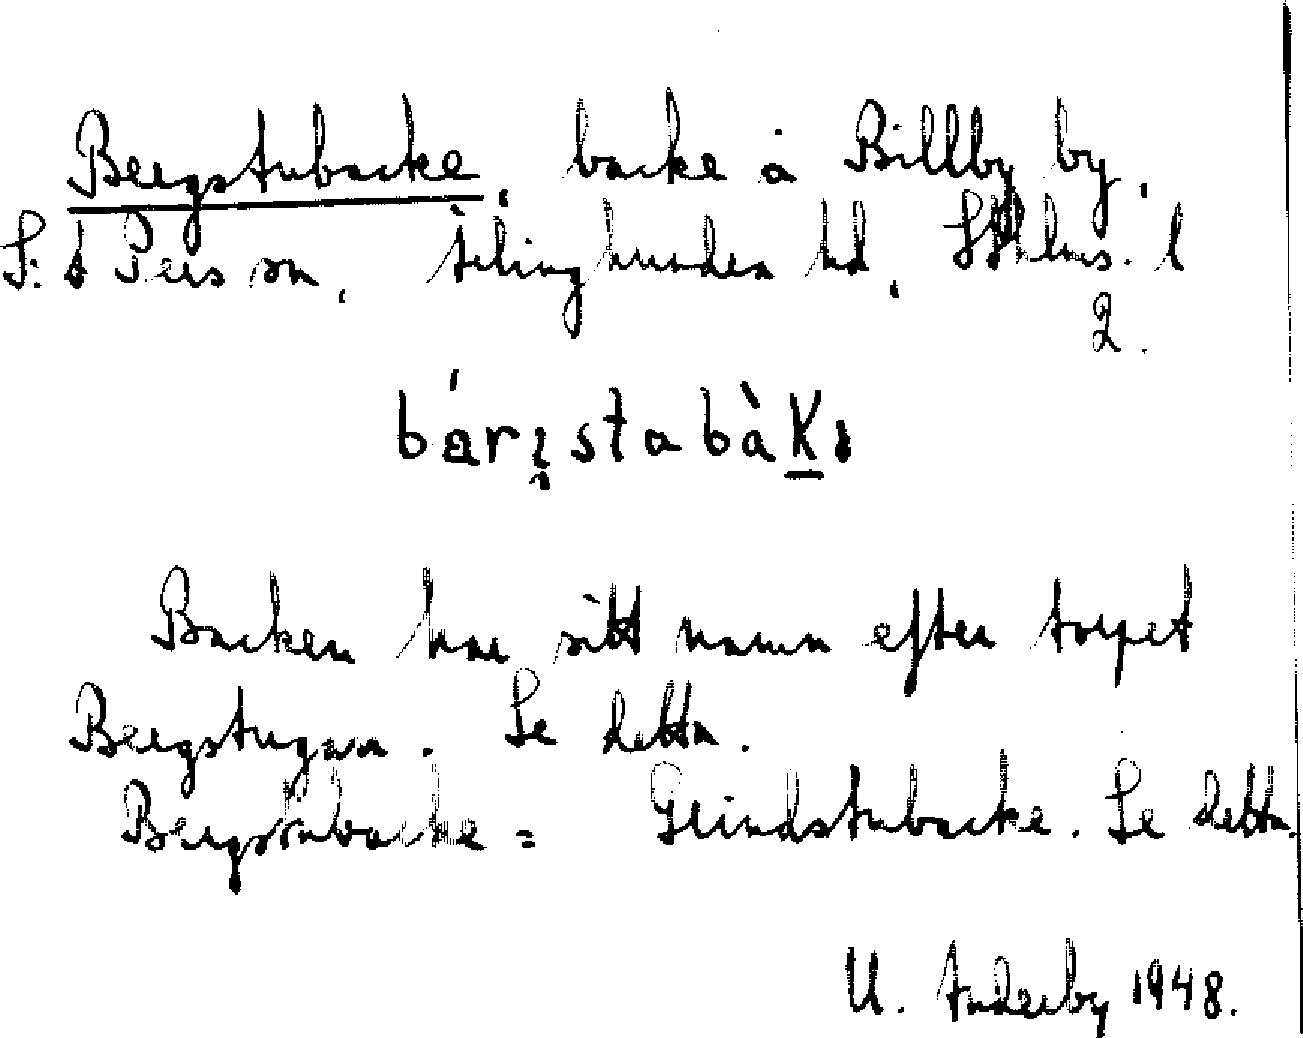 Bergstubacke, backe å Billby by,
S:t Pers sn, Ärlinghundra hd, Sthlms. l
2.
Backen har sitt namn efter torpet
Bergstugan. Se detta.
Bergstubacke = Grindstubacke. Se detta.
U. Anderby 1948.